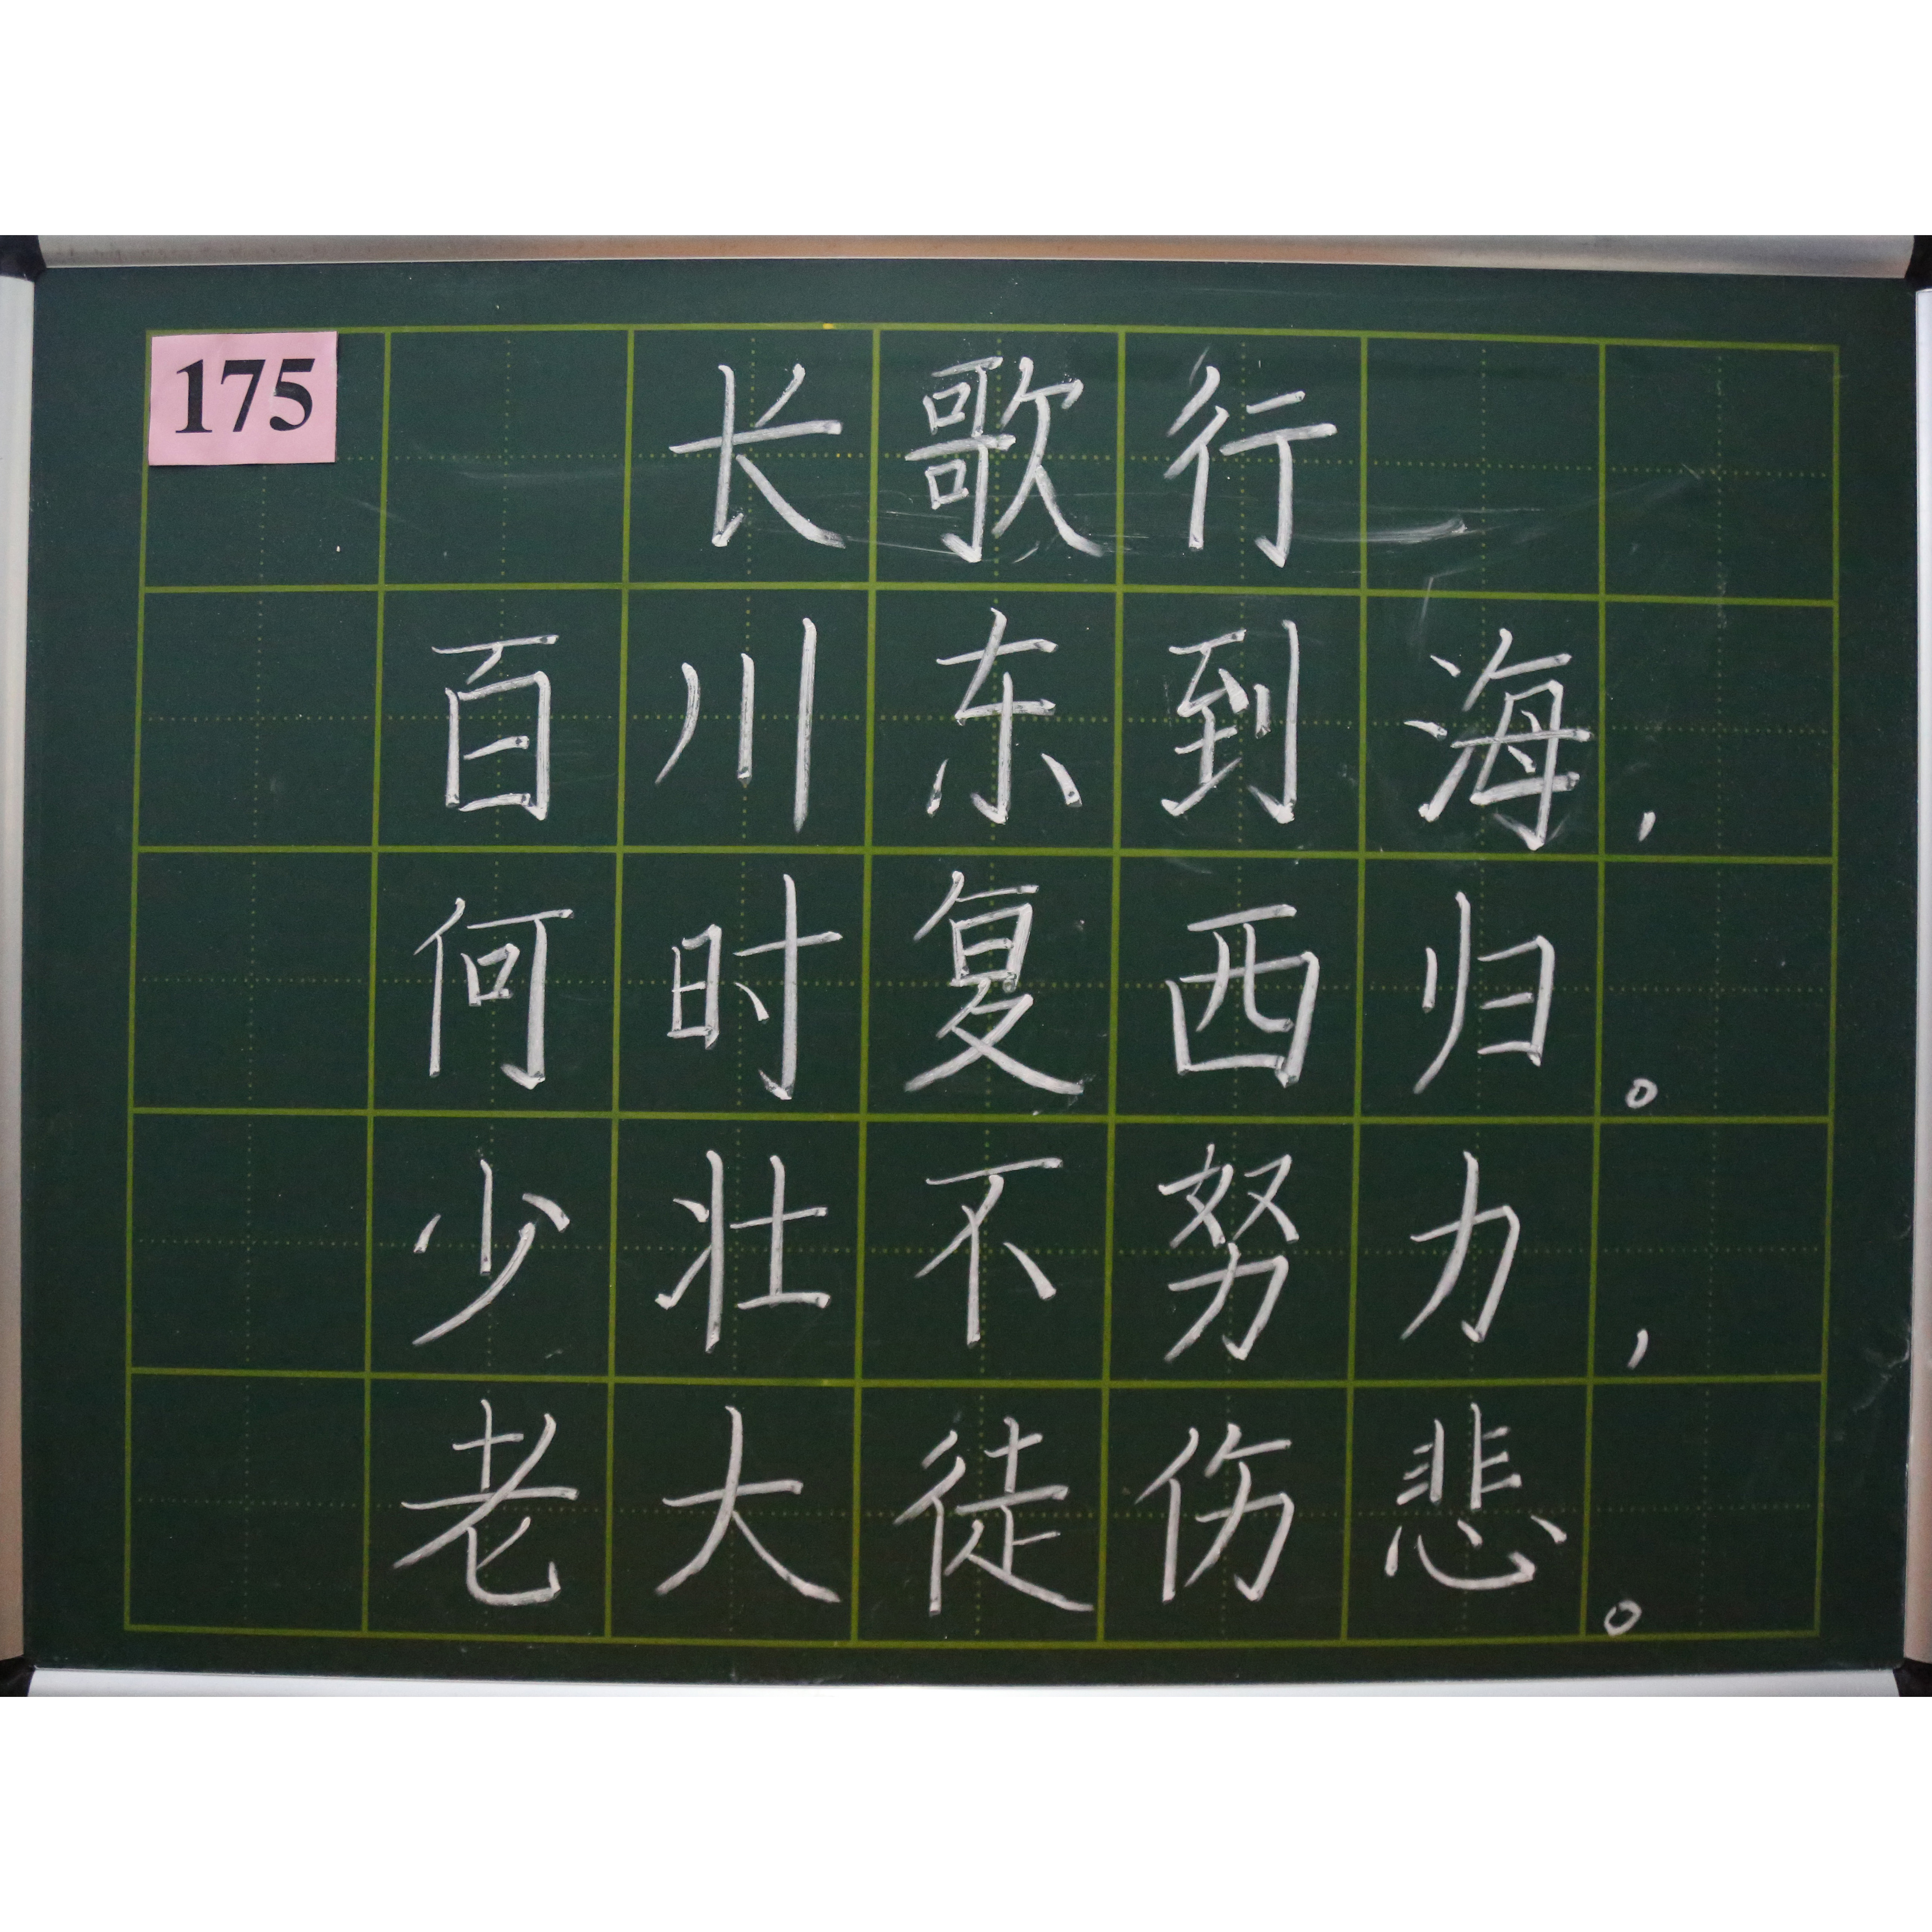 175
长歌行
百川东到海，
何时复西归。
少壮不努力，
老大徒伤悲。